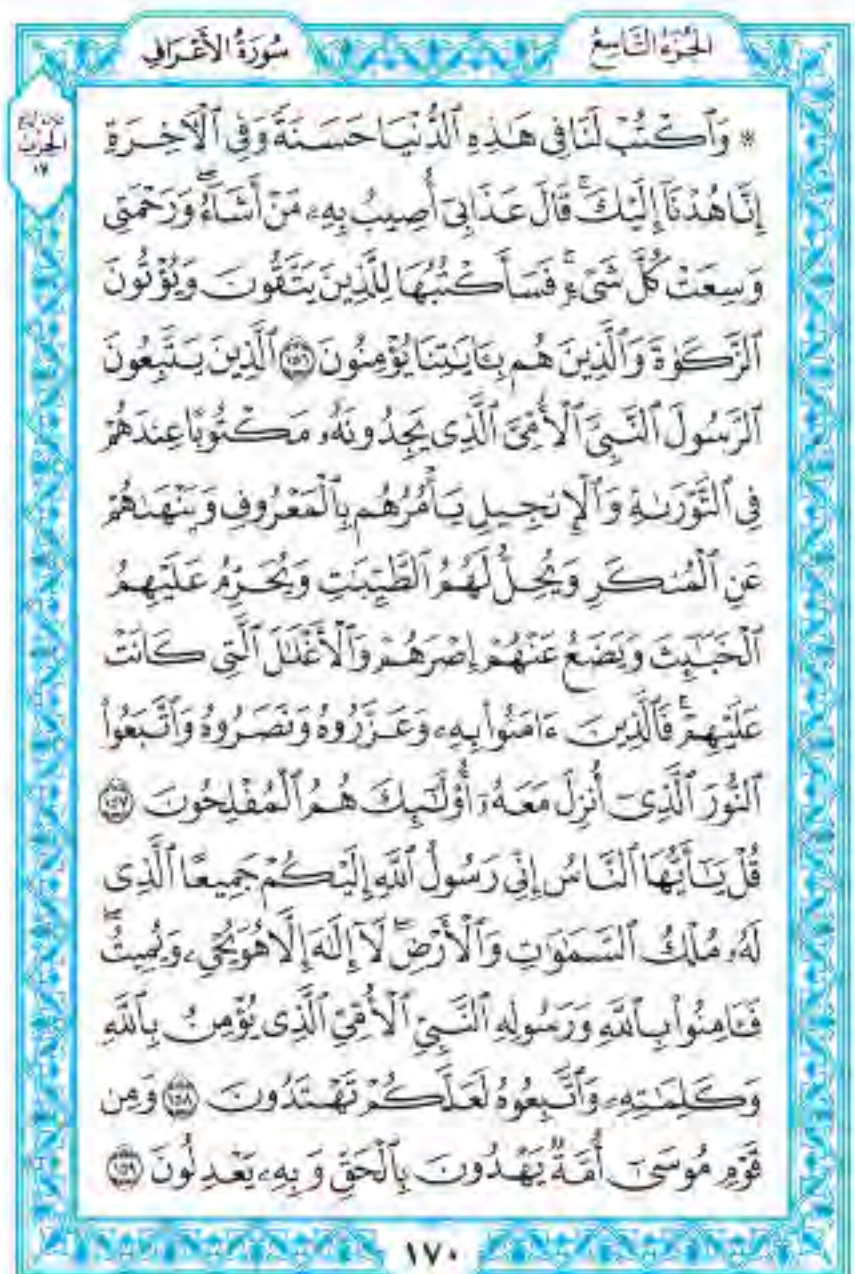 الجزء التاسع
سورة الأعراف
الحزب
١٧
* وَٱكۡتُبۡ لَنَا فِي هَٰذِهِ ٱلدُّنۡيَا حَسَنَةٗ وَفِي ٱلۡأٓخِرَةِ
إِنَّا هُدۡنَآ إِلَيۡكَۚ قَالَ عَذَابِيٓ أُصِيبُ بِهِۦ مَنۡ أَشَآءُۖ وَرَحۡمَتِي
وَسِعَتۡ كُلَّ شَيۡءٖۚ فَسَأَكۡتُبُهَا لِلَّذِينَ يَتَّقُونَ وَيُؤۡتُونَ
ٱلزَّكَوٰةَ وَٱلَّذِينَ هُم بِـَٔايَٰتِنَا يُؤۡمِنُونَ ١٥٦ ٱلَّذِينَ يَتَّبِعُونَ
ٱلرَّسُولَ ٱلنَّبِيَّ ٱلۡأُمِّيَّ ٱلَّذِي يَجِدُونَهُۥ مَكۡتُوبًا عِندَهُمۡ
فِي ٱلتَّوۡرَىٰةِ وَٱلۡإِنجِيلِ يَأۡمُرُهُم بِٱلۡمَعۡرُوفِ وَيَنۡهَىٰهُمۡ
عَنِ ٱلۡمُنكَرِ وَيُحِلُّ لَهُمُ ٱلطَّيِّبَٰتِ وَيُحَرِّمُ عَلَيۡهِمُ
ٱلۡخَبَٰٓئِثَ وَيَضَعُ عَنۡهُمۡ إِصۡرَهُمۡ وَٱلۡأَغۡلَٰلَ ٱلَّتِي كَانَتۡ
عَلَيۡهِمۡۚ فَٱلَّذِينَ ءَامَنُواْ بِهِۦ وَعَزَّرُوهُ وَنَصَرُوهُ وَٱتَّبَعُواْ
ٱلنُّورَ ٱلَّذِيٓ أُنزِلَ مَعَهُۥٓ أُوْلَٰٓئِكَ هُمُ ٱلۡمُفۡلِحُونَ ١٥٧
قُلۡ يَٰٓأَيُّهَا ٱلنَّاسُ إِنِّي رَسُولُ ٱللَّهِ إِلَيۡكُمۡ جَمِيعًا ٱلَّذِي
لَهُۥ مُلۡكُ ٱلسَّمَٰوَٰتِ وَٱلۡأَرۡضِۖ لَآ إِلَٰهَ إِلَّا هُوَ يُحۡيِۦ وَيُمِيتُۖ
فَـَٔامِنُواْ بِٱللَّهِ وَرَسُولِهِ ٱلنَّبِيِّ ٱلۡأُمِّيِّ ٱلَّذِي يُؤۡمِنُ بِٱللَّهِ
وَكَلِمَٰتِهِۦ وَٱتَّبِعُوهُ لَعَلَّكُمۡ تَهۡتَدُونَ ١٥٨ وَمِن
قَوۡمِ مُوسَىٰٓ أُمَّةٞ يَهۡدُونَ بِٱلۡحَقِّ وَبِهِۦ يَعۡدِلُونَ ١٥٩
١٧٠